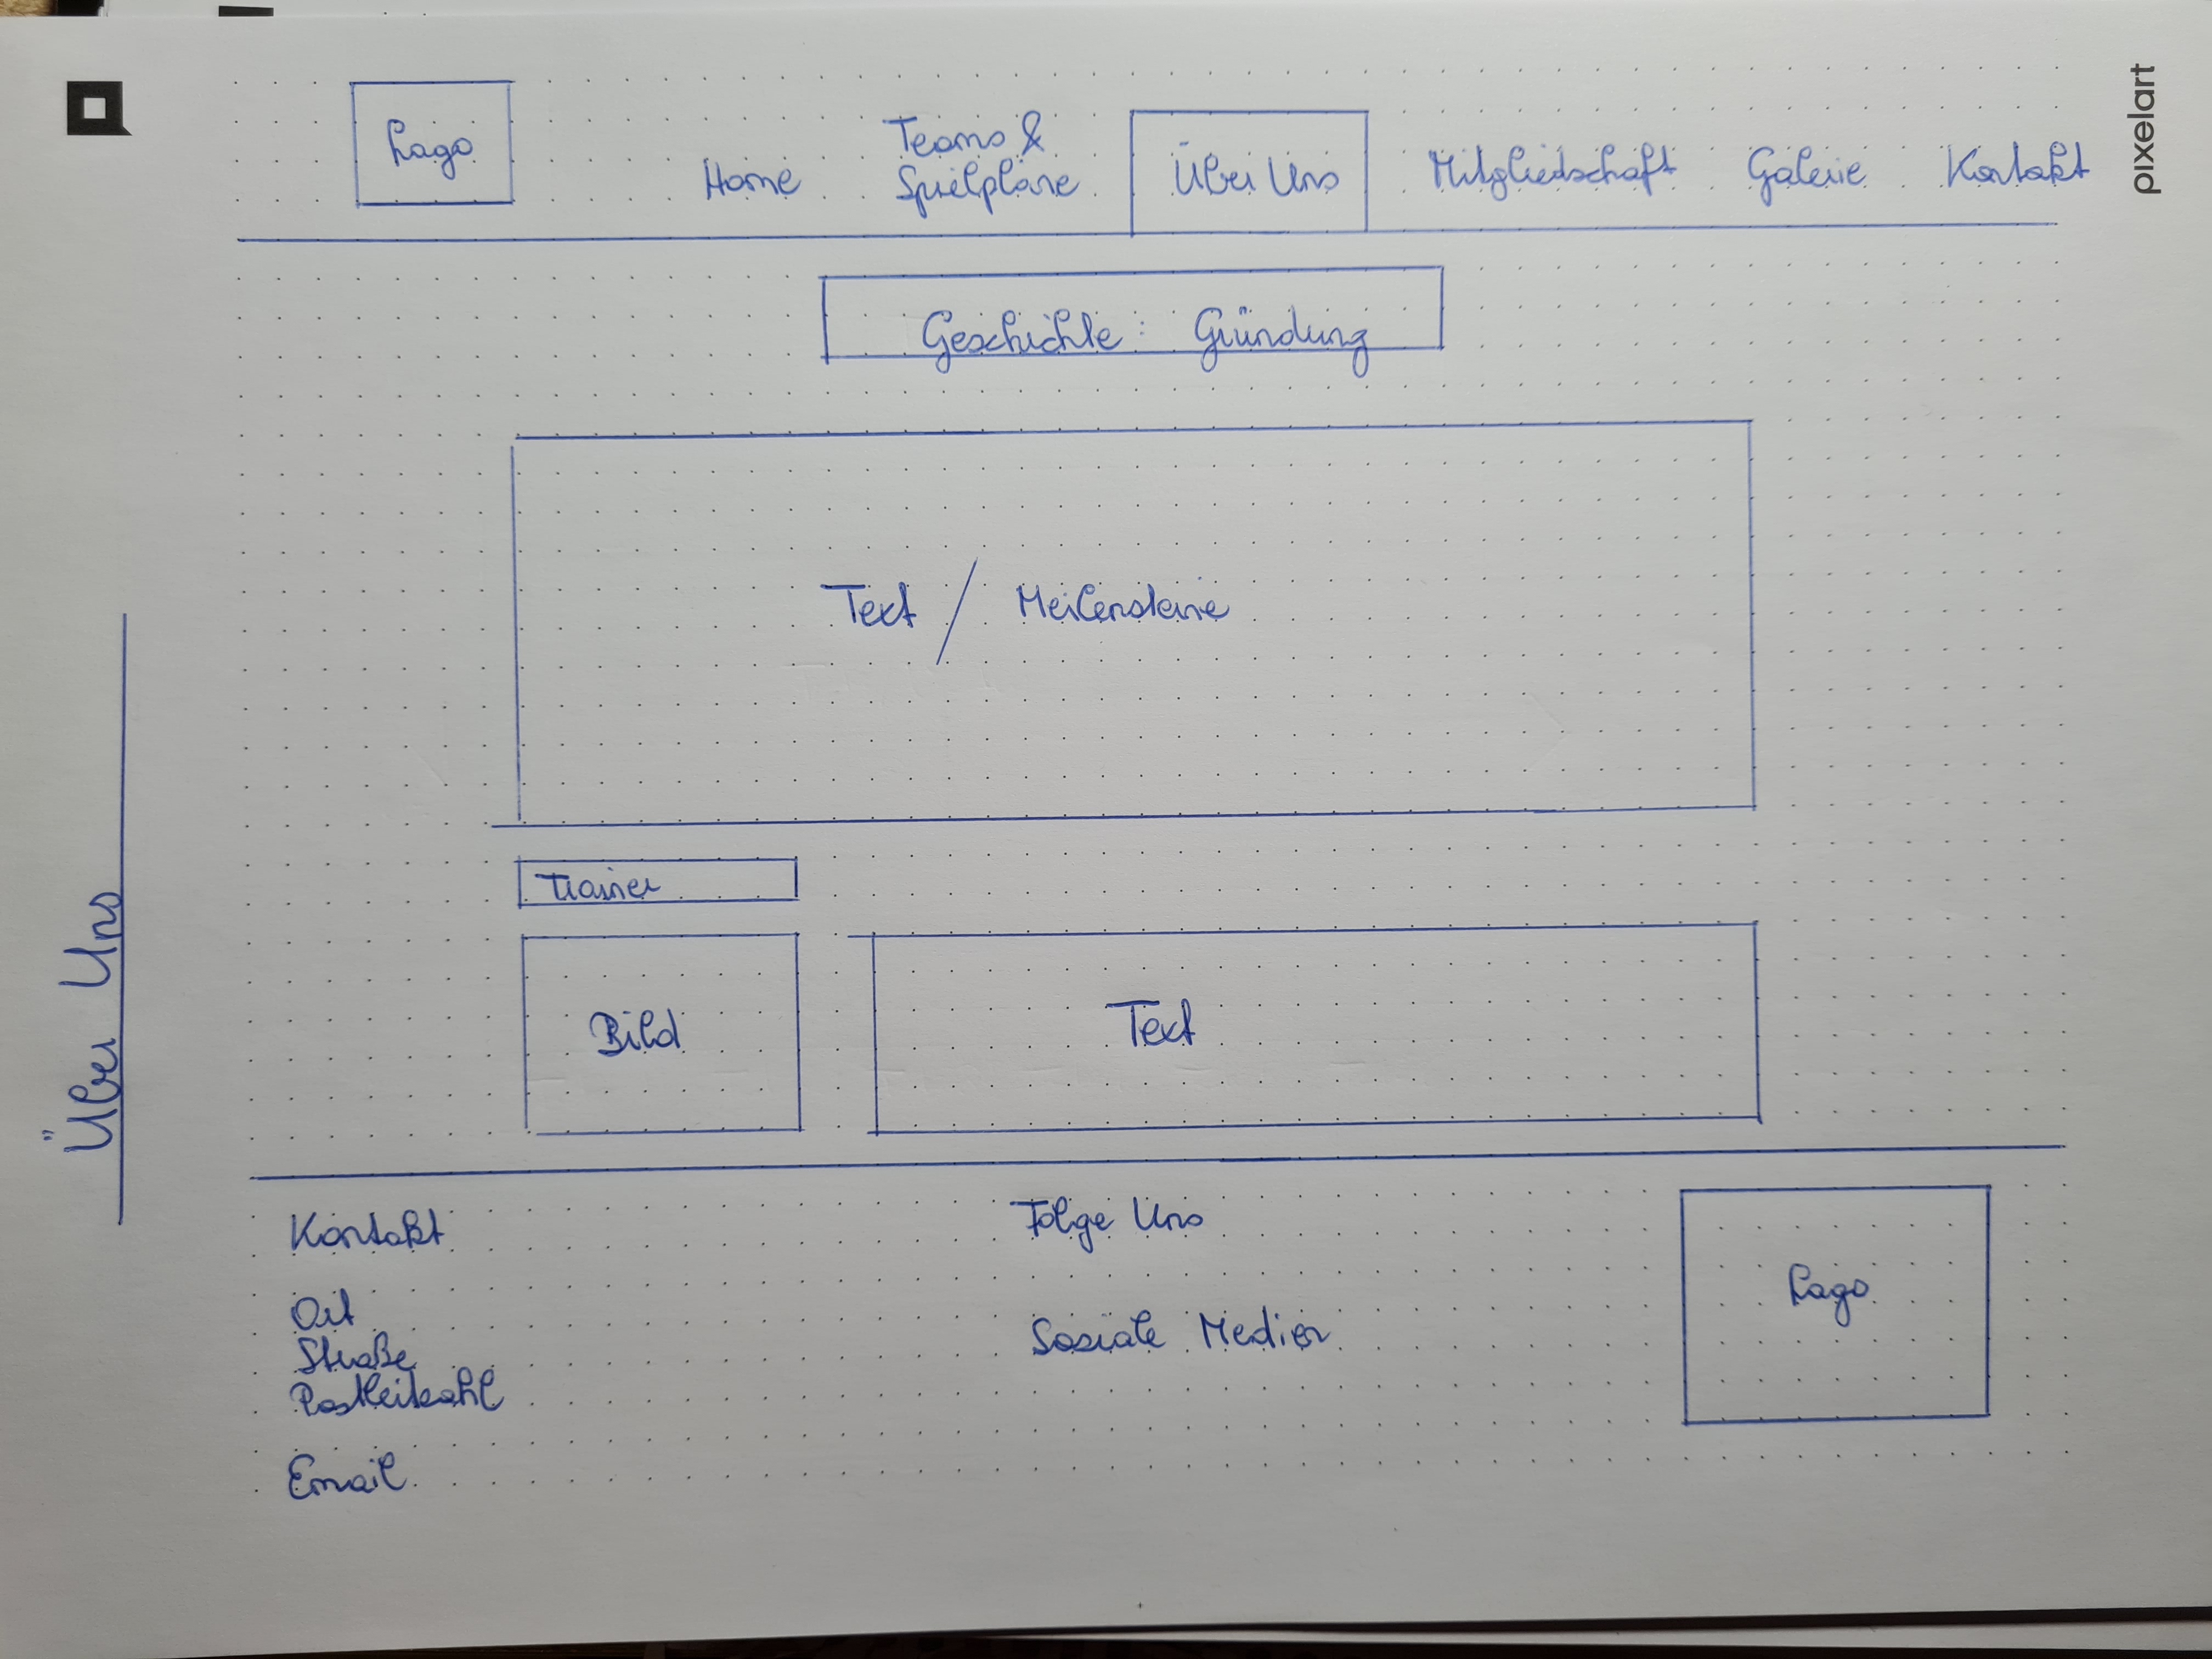 pixelart
Über Uns
Logo
Home
Teams &
Spielpläne
Über Uns
Mitgliedschaft
Galerie
Kontakt
Geschichte: Gründung
Text / Meilensteine
Trainer
Bild
Text
Kontakt
Ort
Straße
Postleitzahl
Email
Folge Uns
Soziale Medien
Logo